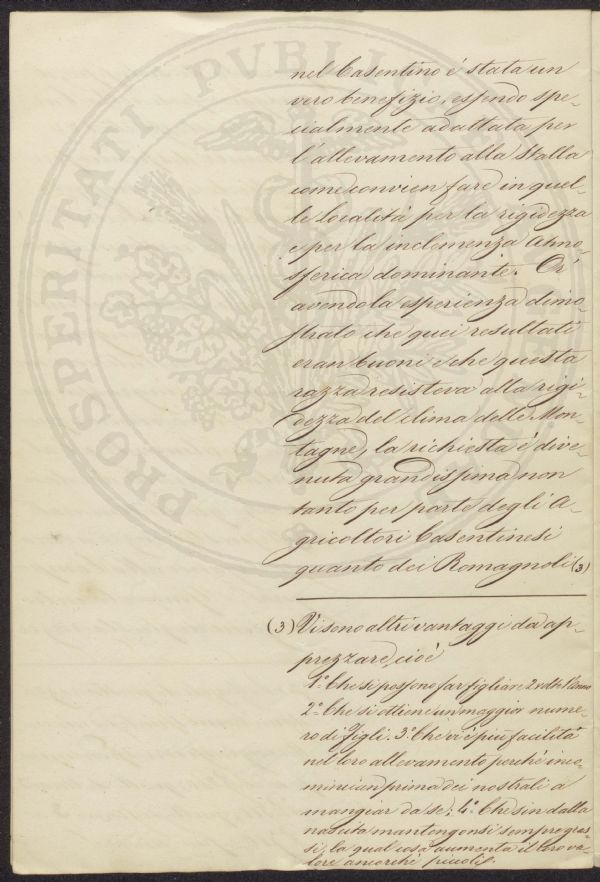 PROSPERITATI PVBLI
nel Casentino é stata un
vero benefizio, essendo spe-
cialmente adattata per
l'allevamento alla Stalla
come convien fare in quel-
le località per la rigidezza
e per la inclemenza Atmo-
sferica dominante. Or'
avendo la esperienza dimo-
strato che quei resultati
eran buoni e che questa
razza resisteva alla rigi-
dezza del clima delle Mon-
tagne, la richiesta é dive-
nuta grandissima non
tanto per parte degli A-
gricoltori Casentinesi
quanto dei Romagnoli (3)
(3) Vi sono altri vantaggi da ap-
prezzare, cioé
1.º Che si possono far figliare 2 vlte l'Anno
2.º Che si ottiene un maggior nume-
ro di figli. 3.º Che vi é più facilità
nel loro allevamento perché inco-
minciano prima dei nostrali a
mangiar da se; 4.º Che sin dalla
nascita mantengonsi sempre gras-
si, la qual cosa aumenta il loro va-
lore ancorché piccoli.